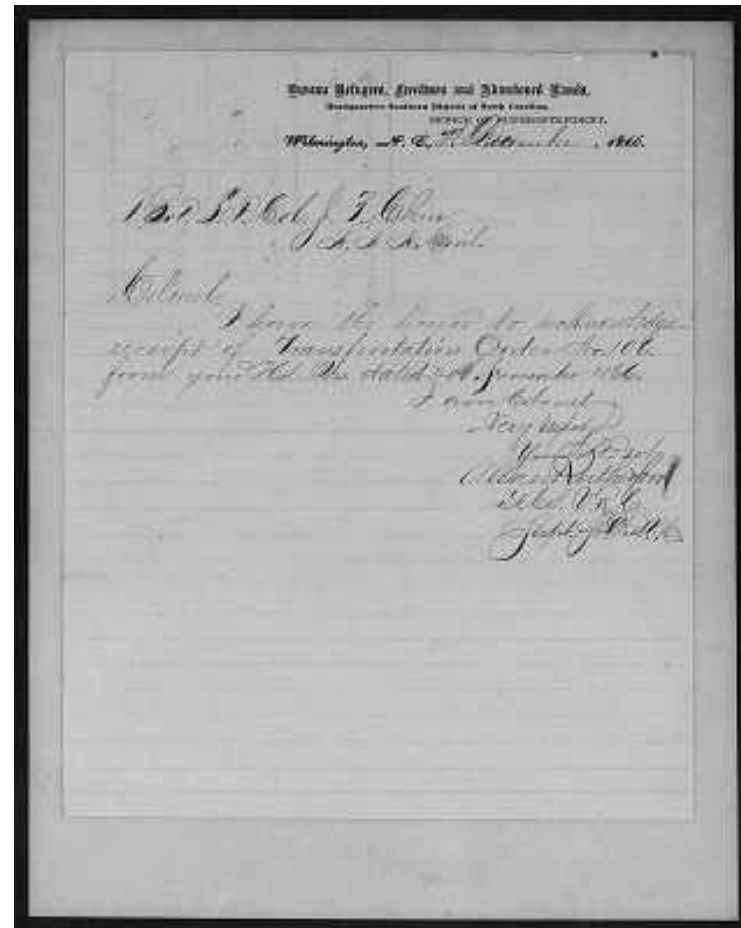 Bureau Refugees, Freedmen and Abandoned Lands,
Headquarters Southern District of North Carolina,
OFFICE OF SUPERINTENDENT,
Wilmington, N. C., December , 1866.
Bvt Lt. Col. J. F. Chur
A. A. A. Genl.
Colonel
I have the honor to acknowledge
receipt of Transportation Order No. 106.
from your Hd. Qrs. dated November 1866.
I am Colonel
Very Respy
Your Obt
Allan Rutherford
V. R. C.